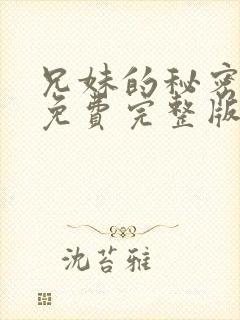 兄妹的秘密
免费完整版
沈苔雅